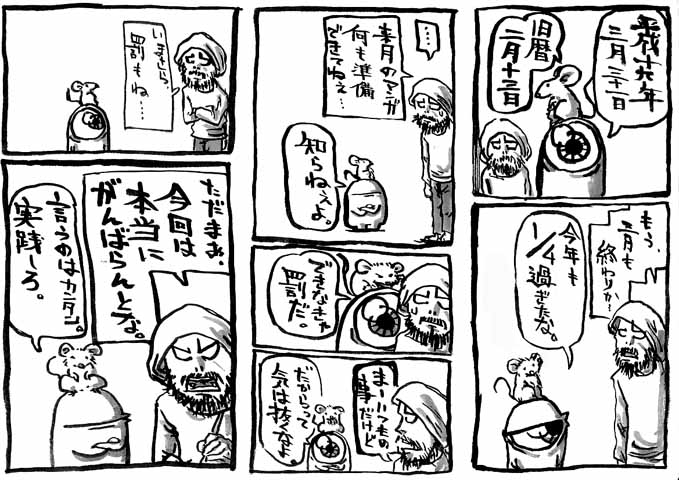 平成十九年
三月三十日
旧暦
二月十二日
もう、
三月も
終わりか…
今年も
1/4
過ぎたな。
…
来月のマンガ
何も準備
できてねぇ…
知らねぇよ。
できなきゃ
罰だ。
まーいつもの
事だけど
だからって
気は抜くなよ。
いまさら、
罰もね…
ただまぁ、
今回は
本当に
がんばらんとな。
言うのはカンタン。
実践しろ。